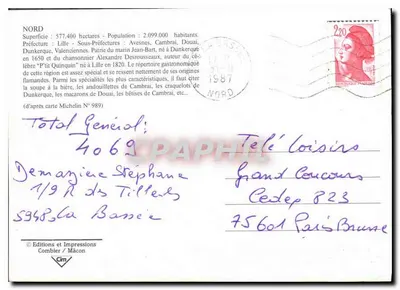 NORD
Superficie : 577.400 hectares - Population : 2.099.000 habitants.
Préfecture : Lille - Sous-Préfectures : Avesnes, Cambrai, Douai,
Dunkerque, Valenciennes. Patrie du marin Jean-Bart, né à Dunkerque
en 1650 et du chansonnier Alexandre Desrousseaux, auteur du cé-
lèbre "P'tit Quinquin" né à Lille en 1820. Le répertoire gastronomique
de cette région est assez spécial et se ressent nettement des origines
flamandes. Parmi les spécialités, il faut citer la soupe
à la bière, les andouillettes de Cambrai, les craquelots de
Dunkerque, les macarons de Douai, les bêtises de Cambrai, etc...
(d'après carte Michelin N° 989)
2,20
1987
NORD
Total Général:
4069
Demazière Stéphane
1/9 R des Tilleuls
59480 La Bassée
Télé Loisirs
Grand Concours
Cedex 823
75601 Paris Brune
© Editions et Impressions
Combier / Mâcon
Cim